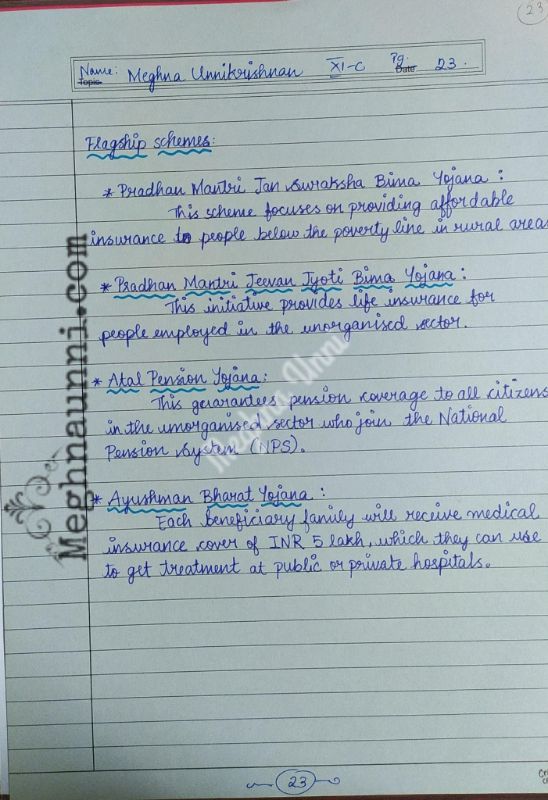 23
Name: Meghna Unnikrishnan XI-C Pg. 23.
Topic: Date
Flagship schemes:
* Pradhan Mantri Jan Suraksha Bima Yojana :
This scheme focuses on providing affordable
insurance to people below the poverty line in rural areas
* Pradhan Mantri Jeevan Jyoti Bima Yojana :
This initiative provides life insurance for
people employed in the unorganised sector.
* Atal Pension Yojana:
This guarantees pension coverage to all citizens
in the unorganised sector who join the National
Pension System (NPS).
* Ayushman Bharat Yojana :
Each beneficiary family will receive medical
insurance cover of INR 5 lakh, which they can use
to get treatment at public or private hospitals.
Meghnaunni.com
Meghna Unni
23